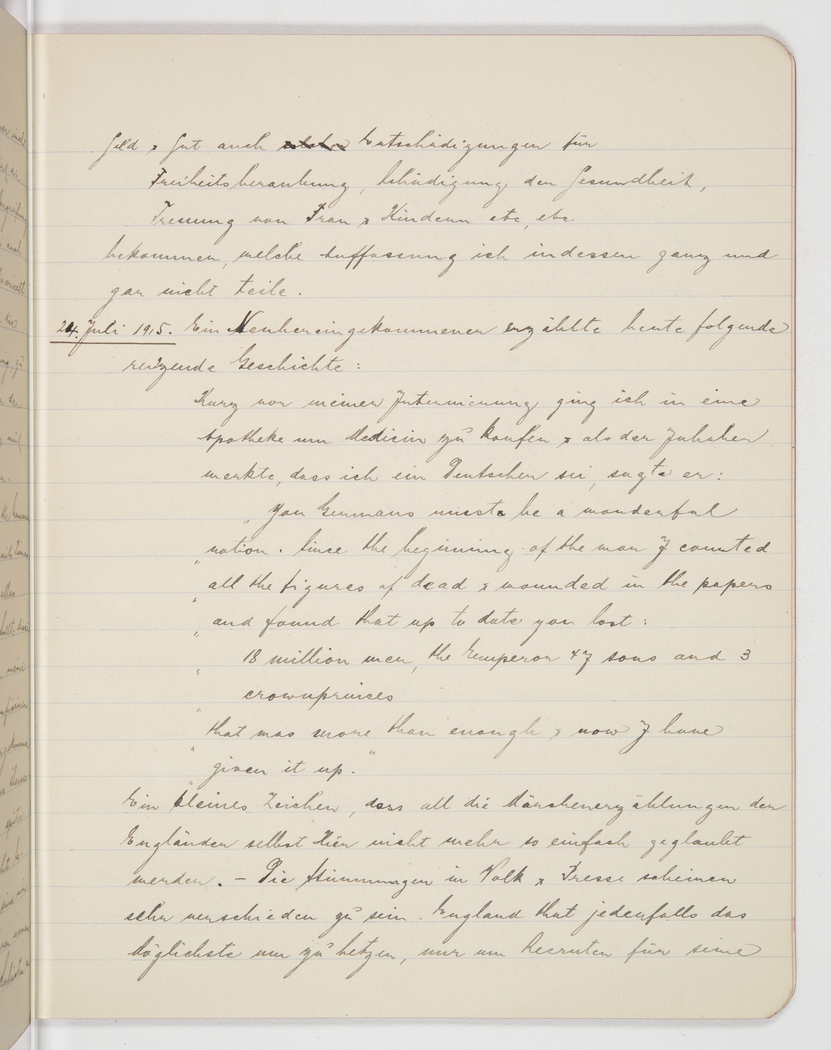 Geld & Gut auch Entschädigungen für
Freiheitsberaubung, Schädigung der Gesundheit,
Trennung von Frau & Kindern etc, etc
bekommen, welche Auffassung ich indessen ganz und
gar nicht teile.
24. Juli 1915. Ein Neuhereingekommener erzählte heute folgende
reizende Geschichte:
Kurz vor meiner Internierung ging ich in eine
Apotheke um Medicin zu kaufen & als der Inhaber
merkte, dass ich ein Deutscher sei, sagte er:
„ You Germans must be a wonderful
" nation. Since the beginning of the war I counted
" all the figures of dead & wounded in the papers
" and found that up to date you lost:
" 18 million men, the Emperor & 7 sons and 3
" crownprinces
" that was more than enough & now I have
" given it up."
Ein kleines Zeichen, dass all die Märchenerzählungen der
Engländer selbst hier nicht mehr so einfach geglaubt
werden. – Die Stimmungen in Volk & Presse scheinen
sehr verschieden zu sein. England that jedenfalls das
Möglichste um zu hetzen, nur um Recruten für seine